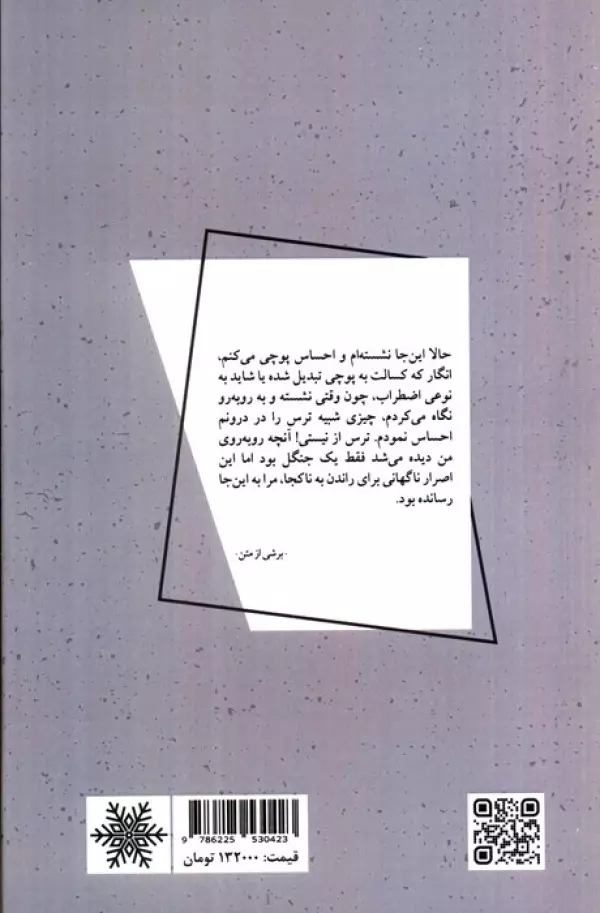 حالا این‌جا نشسته‌ام و احساس پوچی می‌کنم،
انگار که کسالت به پوچی تبدیل شده یا شاید به
نوعی اضطراب، چون وقتی نشسته و به روبه‌رو
نگاه می‌کردم، چیزی شبیه ترس را در درونم
احساس نمودم. ترس از نیستی! آنچه روبه‌روی
من دیده می‌شد فقط یک جنگل بود اما این
اصرار ناگهانی برای راندن به ناکجا، مرا به این‌جا
رسانده بود.
·برشی از متن·
9 786225 530423
قیمت: ۱۳۲۰۰۰ تومان